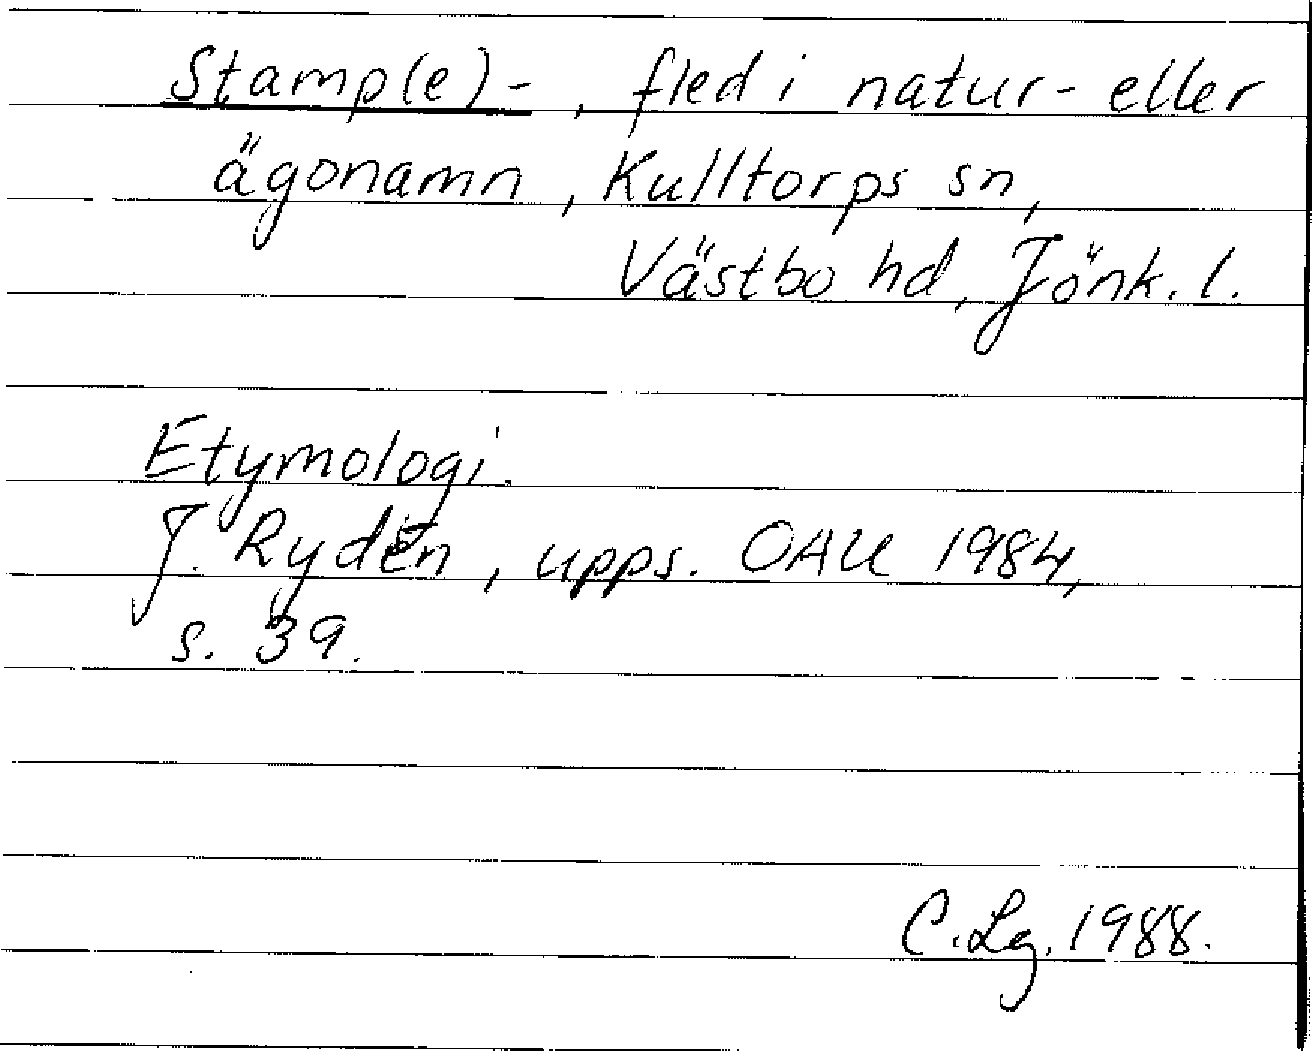 Stamp(e)-, fled i natur- eller
ägonamn, Kulltorps sn,
Västbo hd, Jönk. l.
Etymologi.
J. Rydén, upps. OAU 1984,
s. 39.
C. Lg. 1988.